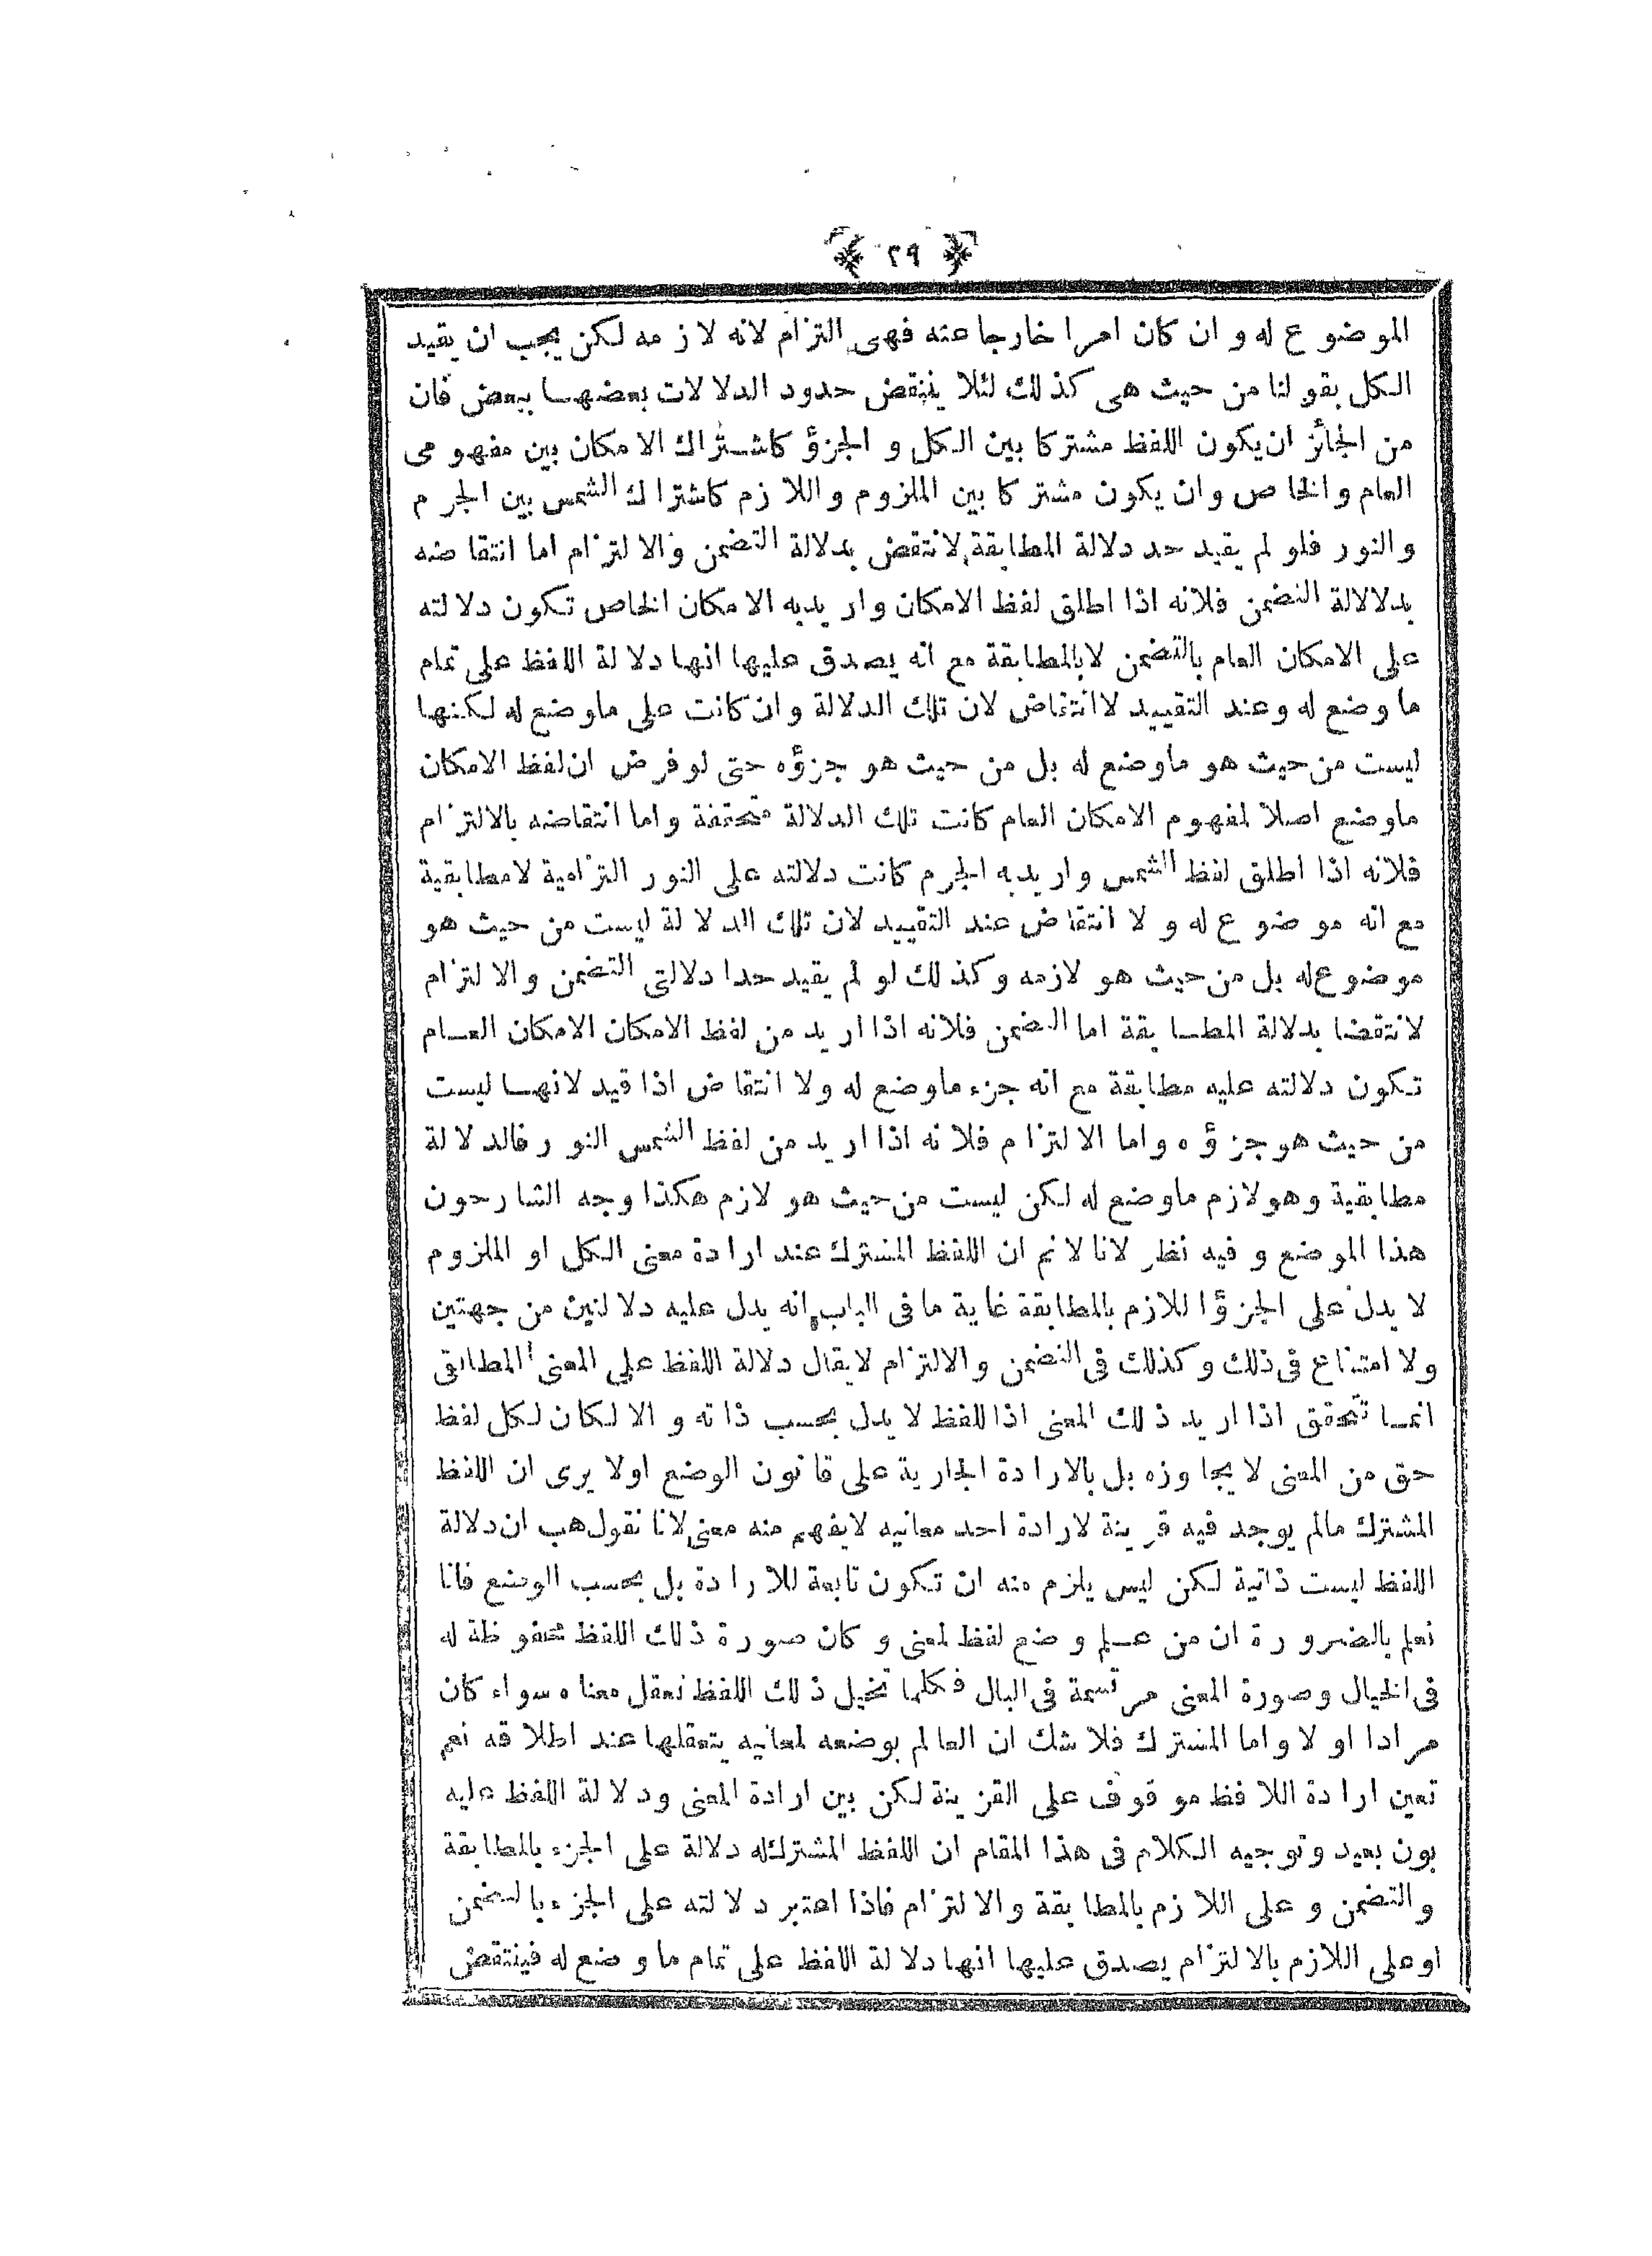 ٢٩
الموضوع له وان كان امرا خارجا عنه فهى التزام لانه لازمه لكن يجب ان يقيد
الكل بقولنا من حيث هى كذلك لئلا ينتقض حدود الدلالات بعضها ببعض فان
من الجائز ان يكون اللفظ مشتركا بين الكل والجزؤ كاشتراك الامكان بين مفهومى
العام والخاص وان يكون مشتركا بين الملزوم واللازم كاشتراك الشمس بين الجرم
والنور فلو لم يقيد حد دلالة المطابقة لانتقض بدلالة التضمن والالتزام اما انتقاضه
بدلالالة التضمن فلانه اذا اطلق لفظ الامكان واريد به الامكان الخاص تكون دلالته
على الامكان العام بالتضمن لابالمطابقة مع انه يصدق عليها انها دلالة اللفظ على تمام
ماوضع له وعند التقييد لاانتقاض لان تلك الدلالة وان كانت على ماوضع له لكنها
ليست من حيث هو ماوضع له بل من حيث هو جزؤه حتى لو فرض ان لفظ الامكان
ماوضع اصلا لمفهوم الامكان العام كانت تلك الدلالة متحققة واما انتقاضه بالالتزام
فلانه اذا اطلق لفظ الشمس واريد به الجرم كانت دلالته على النور التزامية لامطابقية
مع انه موضوع له ولا انتقاض عند التقييد لان تلك الدلالة ليست من حيث هو
موضوع له بل من حيث هو لازمه وكذلك لو لم يقيد حدا دلالتى التضمن والالتزام
لانتقضا بدلالة المطابقة اما التضمن فلانه اذا اريد من لفظ الامكان الامكان العام
تكون دلالته عليه مطابقة مع انه جزء ماوضع له ولا انتقاض اذا قيد لانها ليست
من حيث هو جزؤه واما الالتزام فلانه اذا اريد من لفظ الشمس النور فالدلالة
مطابقية وهو لازم ماوضع له لكن ليست من حيث هو لازم هكذا وجه الشارحون
هذا الموضع وفيه نظر لانا لانم ان اللفظ المشترك عند ارادة معنى الكل او الملزوم
لا يدل على الجزؤ اللازم بالمطابقة غاية ما فى الباب انه يدل عليه دلالتين من جهتين
ولا امتناع فى ذلك وكذلك فى التضمن والالتزام لايقال دلالة اللفظ على المعنى المطابقى
انما تتحقق اذا اريد ذلك المعنى اذا للفظ لا يدل بحسب ذاته والا لكان لكل لفظ
حق من المعنى لا يجاوزه بل بالارادة الجارية على قانون الوضع اولا يرى ان اللفظ
المشترك مالم يوجد فيه قرينة لارادة احد معانيه لايفهم منه معنى لانا نقول هب ان دلالة
اللفظ ليست ذاتية لكن ليس يلزم منه ان تكون تابعة للارادة بل بحسب الوضع فانا
نعلم بالضرورة ان من علم وضع لفظ لمعنى وكان صورة ذلك اللفظ محفوظة له
فى الخيال وصورة المعنى مرتسمة فى البال فكلما تخيل ذلك اللفظ تعقل معناه سواء كان
مرادا او لا واما المشترك فلا شك ان العالم بوضعه لمعانيه يتعقلها عند اطلاقه نعم
تعين ارادة اللافظ موقوف على القرينة لكن بين ارادة المعنى ودلالة اللفظ عليه
بون بعيد وتوجيه الكلام فى هذا المقام ان اللفظ المشترك له دلالة على الجزء بالمطابقة
والتضمن وعلى اللازم بالمطابقة والالتزام فاذا اعتبر دلالته على الجزء بالتضمن
او على اللازم بالالتزام يصدق عليها انها دلالة اللفظ على تمام ماوضع له فينتقض